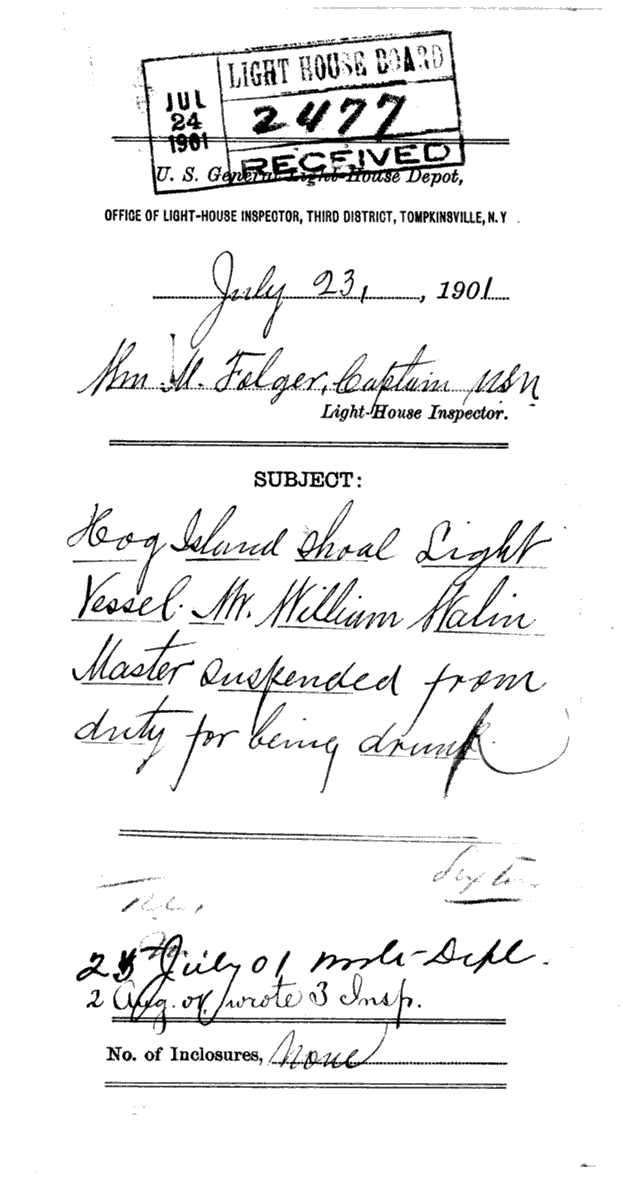 LIGHT HOUSE BOARD
JUL
24
1901
2477
RECEIVED
U. S. General Light-House Depot,
OFFICE OF LIGHT-HOUSE INSPECTOR, THIRD DISTRICT, TOMPKINSVILLE, N.Y.
July 23, , 1901
Wm M. Folger, Captain USN
Light-House Inspector.
SUBJECT:
Hog Island Shoal Light
Vessel. Mr. William Walin
Master suspended from
duty for being drunk.
July 01 wrote Dept.
2 Aug. 01. wrote 3 Insp.
No. of Inclosures, None